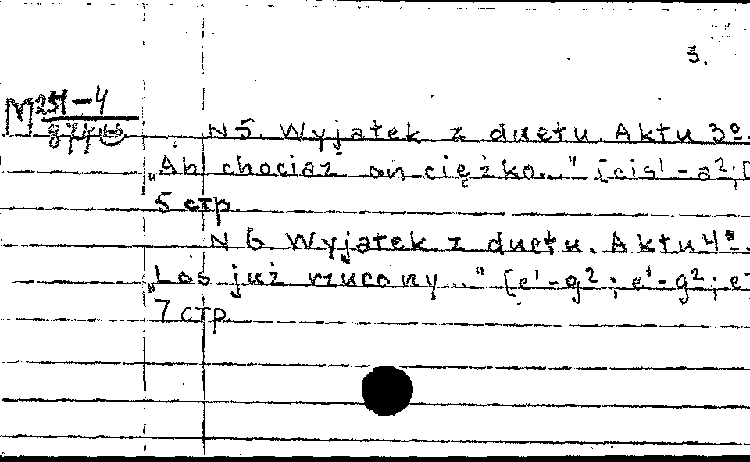 3.
М 251-4
N 5. Wyjątek z duetu. Aktu 3º.
„Ah! chociaż on ciężko..." [cis¹-a²; [
5 стр.
N 6. Wyjątek z duetu. Aktu 4º.
„Los już rzucony..." [e¹-g²; e¹-g²; e
7 стр.